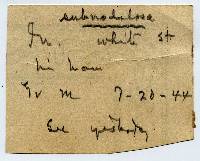 subnodulosa
In. white st
Gr M 7-20-44
See yesterday